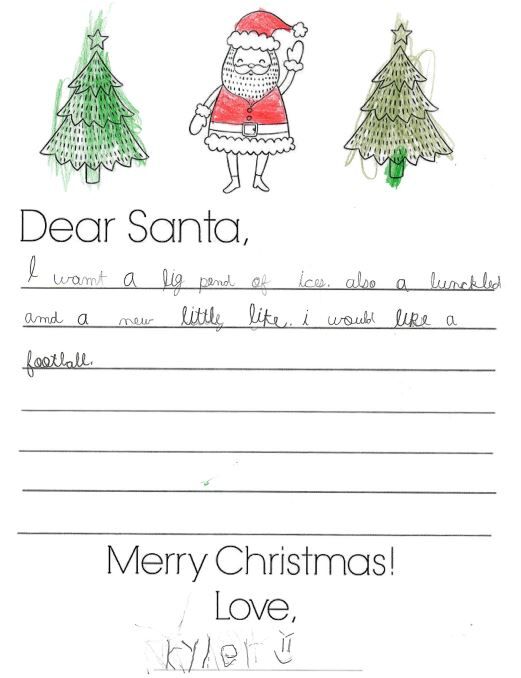 Dear Santa,
I want a big pond of ices. also a bunckbed
and a new little bike. i would like a
football.
Merry Christmas!
Love,
kyler